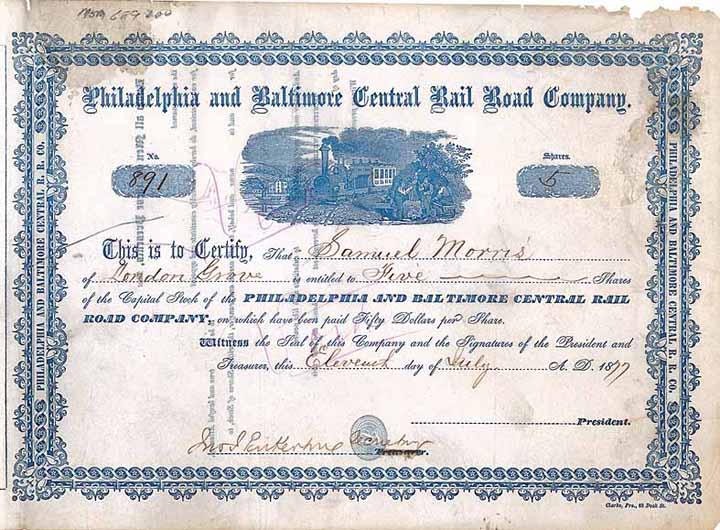 Philadelphia and Baltimore Central Rail Road Company.
No.
891
Shares.
5
This is to Certify, That Samuel Morris
of London Grove is entitled to Five Shares
of the Capital Stock of the PHILADELPHIA AND BALTIMORE CENTRAL RAIL
ROAD COMPANY, on which have been paid Fifty Dollars per Share.
Witness the Seal of this Company and the Signatures of the President and
Treasurer, this Eleventh day of July A. D. 1877
President.
Secretary
Treasurer.
PHILADELPHIA AND BALTIMORE CENTRAL R. R. CO.
PHILADELPHIA AND BALTIMORE CENTRAL R. R. CO.